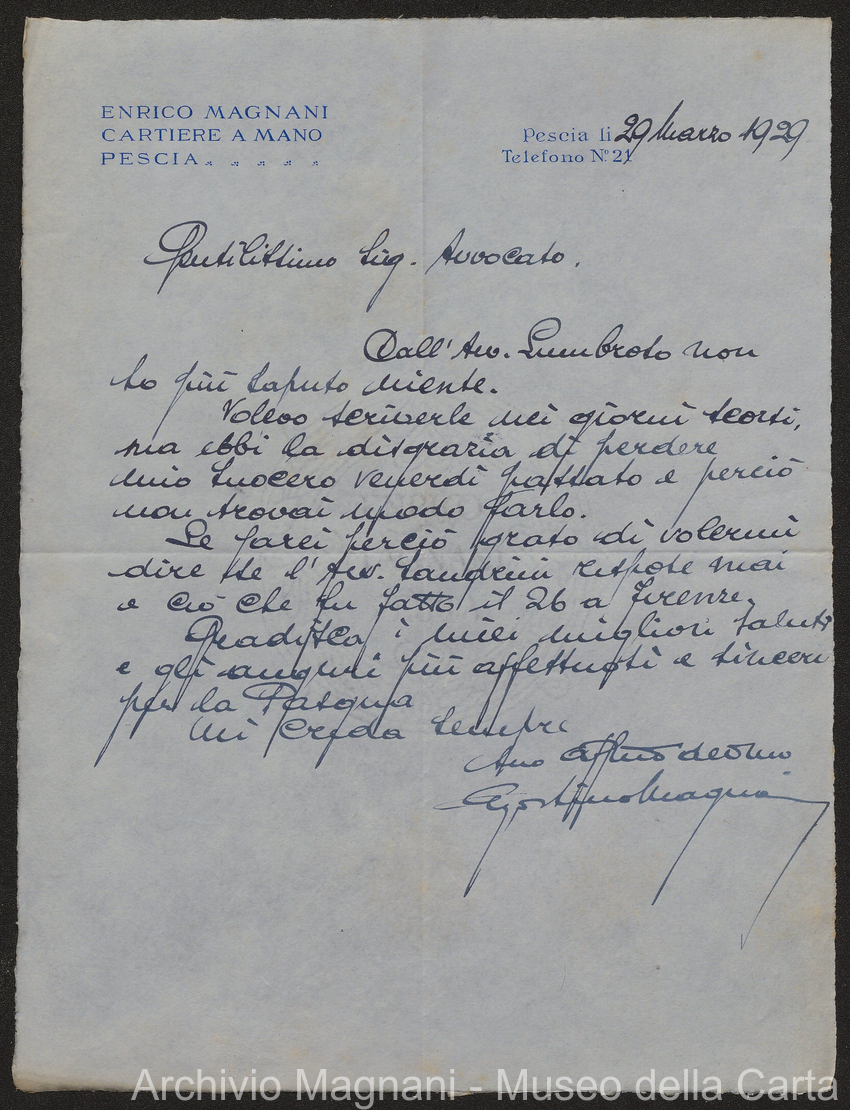 ENRICO MAGNANI
CARTIERE A MANO
PESCIA
Pescia li 29 Marzo 1929
Telefono N.º 21
Gentilissimo Sig. Avvocato.
Dall' Avv. Lumbroso non
so più saputo niente.
Volevo scriverle nei giorni scorsi,
ma ebbi la disgrazia di perdere
mio suocero venerdì passato e perciò
non trovai modo farlo.
Le sarei perciò grato di volermi
dire se l' Avv. Sandrini rispose mai
e ciò che fu fatto il 26 a Firenze.
Gradisca i miei migliori saluti
e gli auguri più affettuosi e sinceri
per la Pasqua
Mi creda sempre
Suo affmo devmo
Agostino Magnani
Archivio Magnani - Museo della Carta